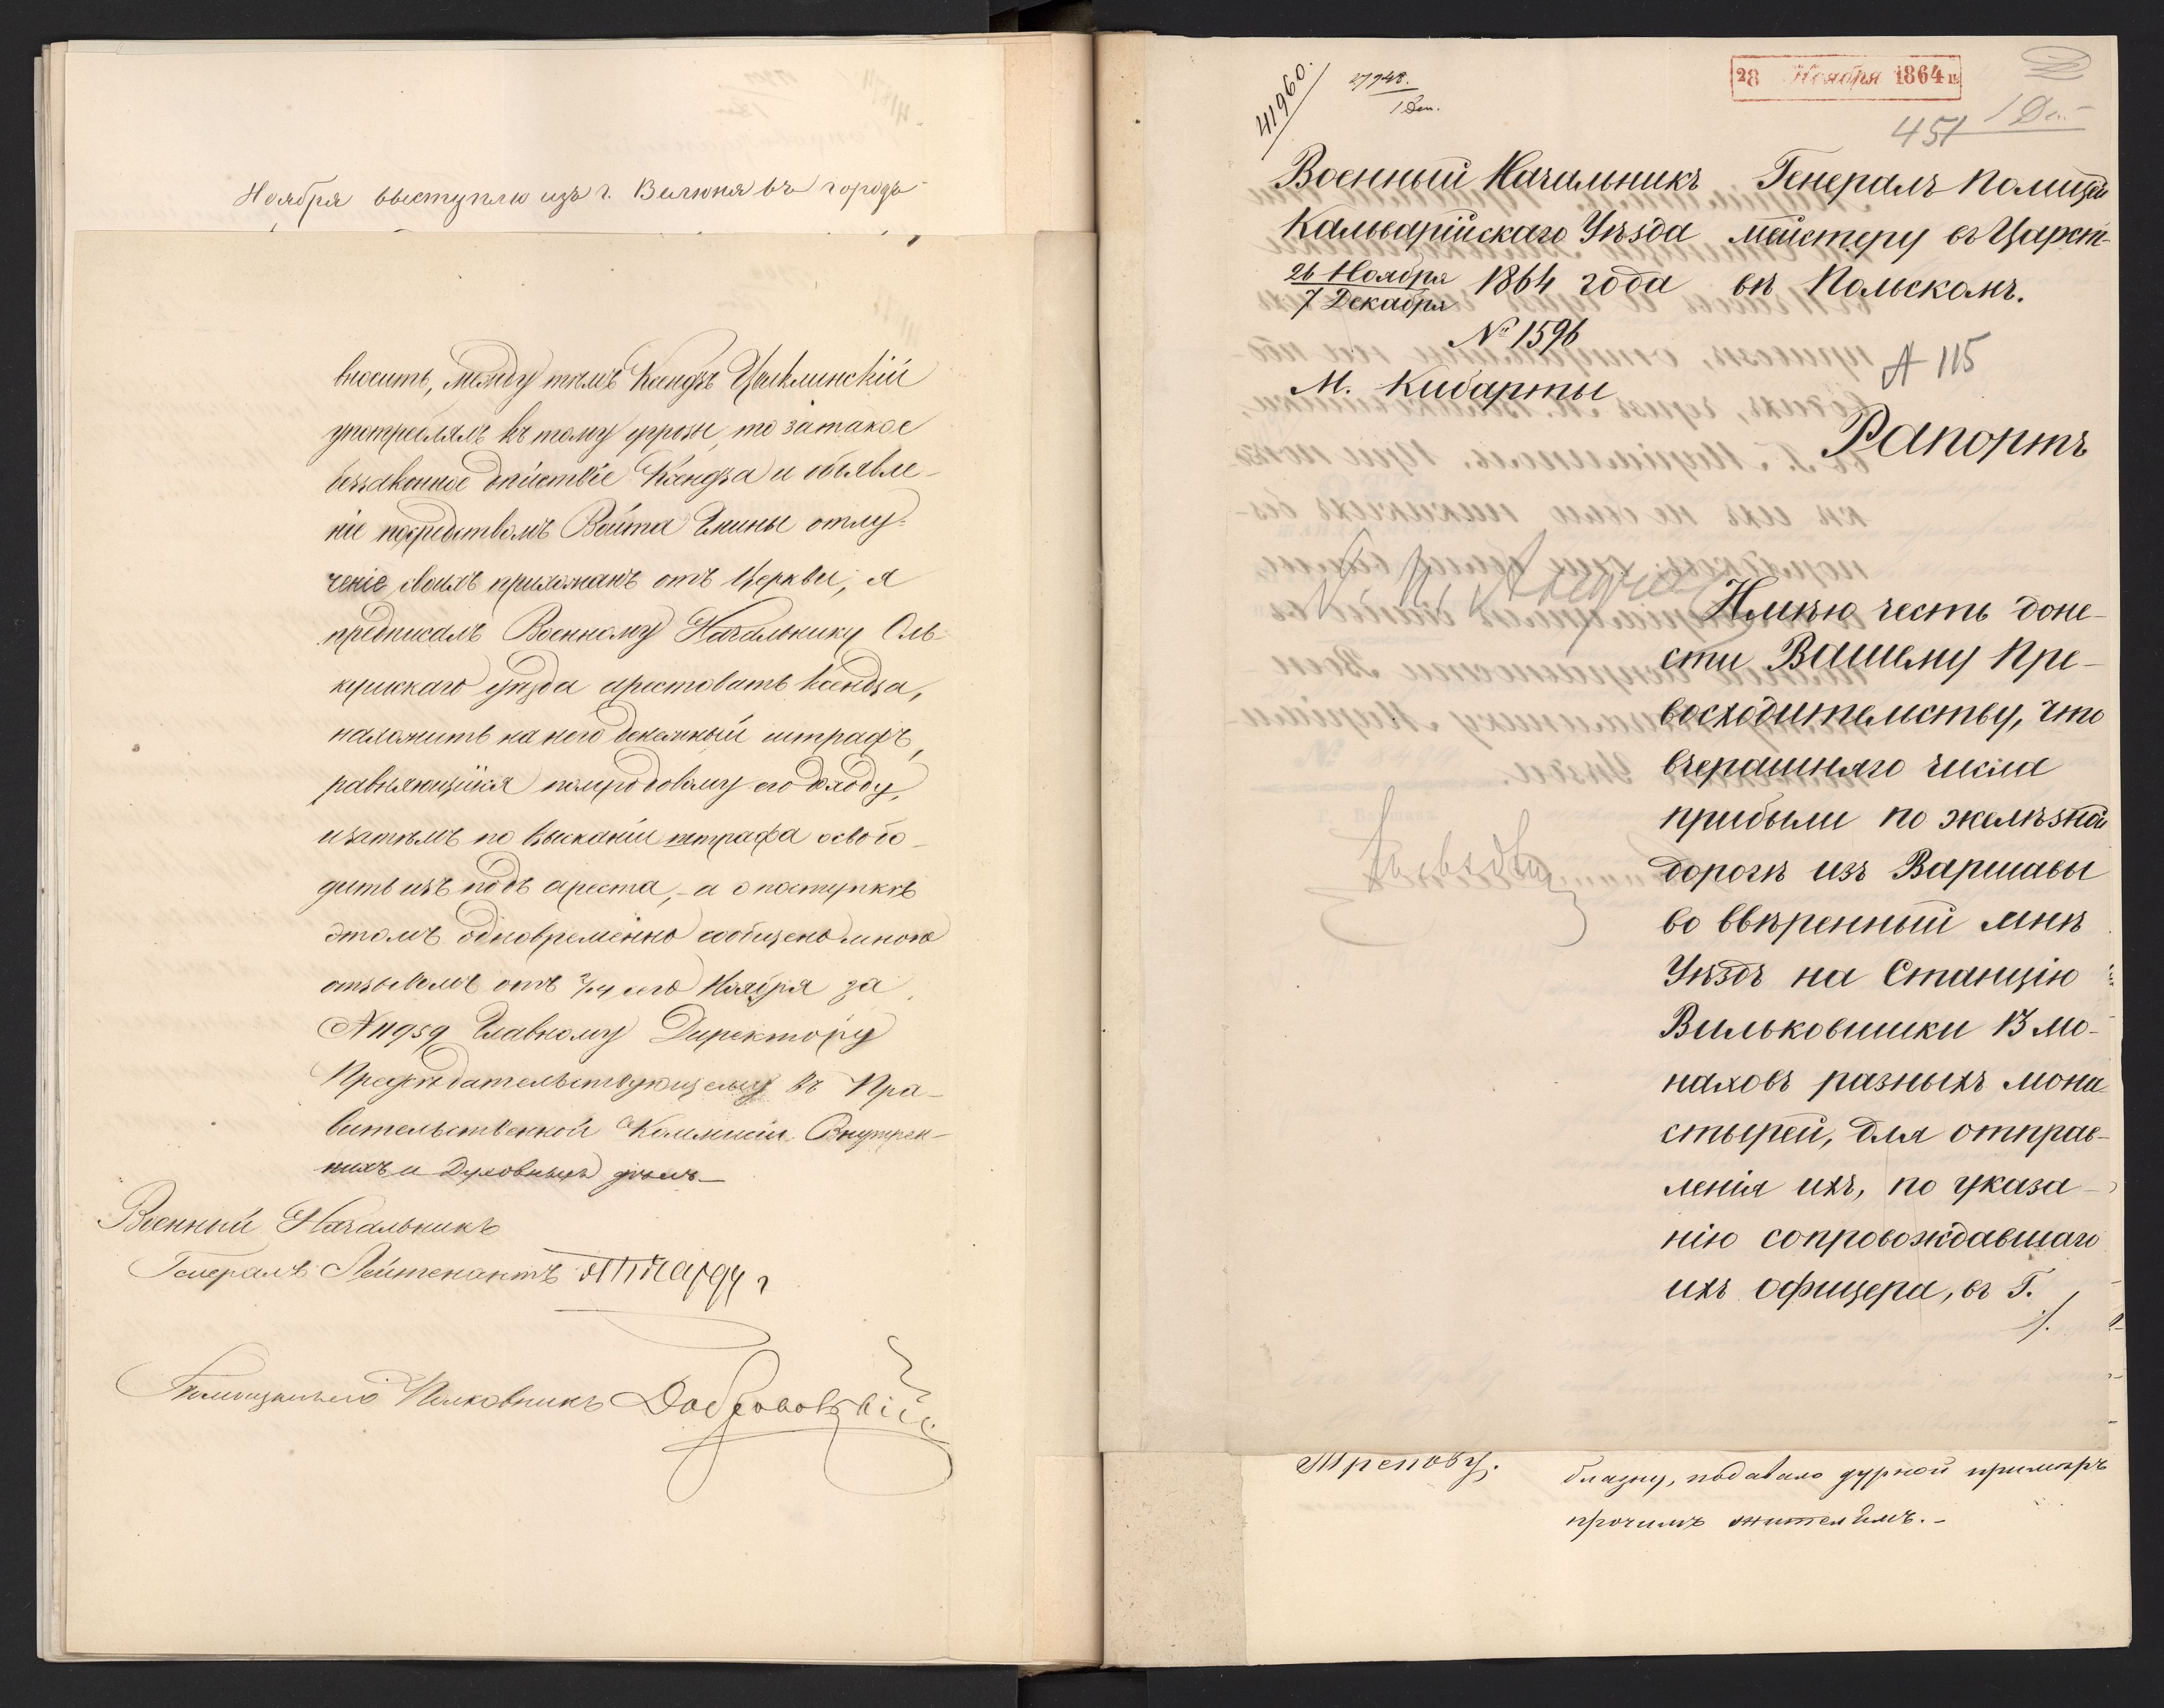 Ноября выступлю изъ г. Велюня въ городъ
вносить, между тѣмъ Ксендзъ
употреблялъ къ тому угрозы, то за такое
беззаконное дѣйствіе Ксендза и объявле-
ніе посредствомъ Войта Гмины отлу-
ченіе своихъ прихожанъ отъ Церкви, я
предписалъ Военному Начальнику Оль-
кушскаго уѣзда арестовать ксендза,
наложить на него денежный штрафъ,
равняющійся полугодовому его доходу,
и затѣмъ по взысканіи штрафа освобо-
дить изъ подъ ареста, а о поступкѣ
этомъ одновременно сообщено мною
отзывомъ отъ 2/14 сего Ноября за
№ 11959 Главному Директору
Предсѣдательствующему въ Пра-
вительственной Коммисіи Внутрен-
нихъ и Духовныхъ дѣлъ
Военный Начальникъ
Генералъ Лейтенантъ
Полковникъ
41960.
27948.
1 Ден.
28 Ноября 1864 г.
451
Военный Начальникъ
Кальварійскаго Уѣзда
26 Ноября
7 Декабря 1864 года
№ 1596
М. Кибарты
Генералъ Полицей
мейстеру въ Царст-
вѣ Польскомъ.
А 115
Рапортъ
Имѣю честь доне-
сти Вашему Пре-
восходительству, что
вчерашняго числа
прибыли по желѣзной
дорогѣ изъ Варшавы
во ввѣренный мнѣ
Уѣздъ на Станцію
Вильковишки 13 мо-
наховъ разныхъ мона-
стырей, для отправ-
ленія ихъ, по указа-
нію сопровождавшаго
ихъ офицера, въ Г.
./.
Трепову.
блазну, подавало дурной примѣръ
прочимъ жителямъ.-